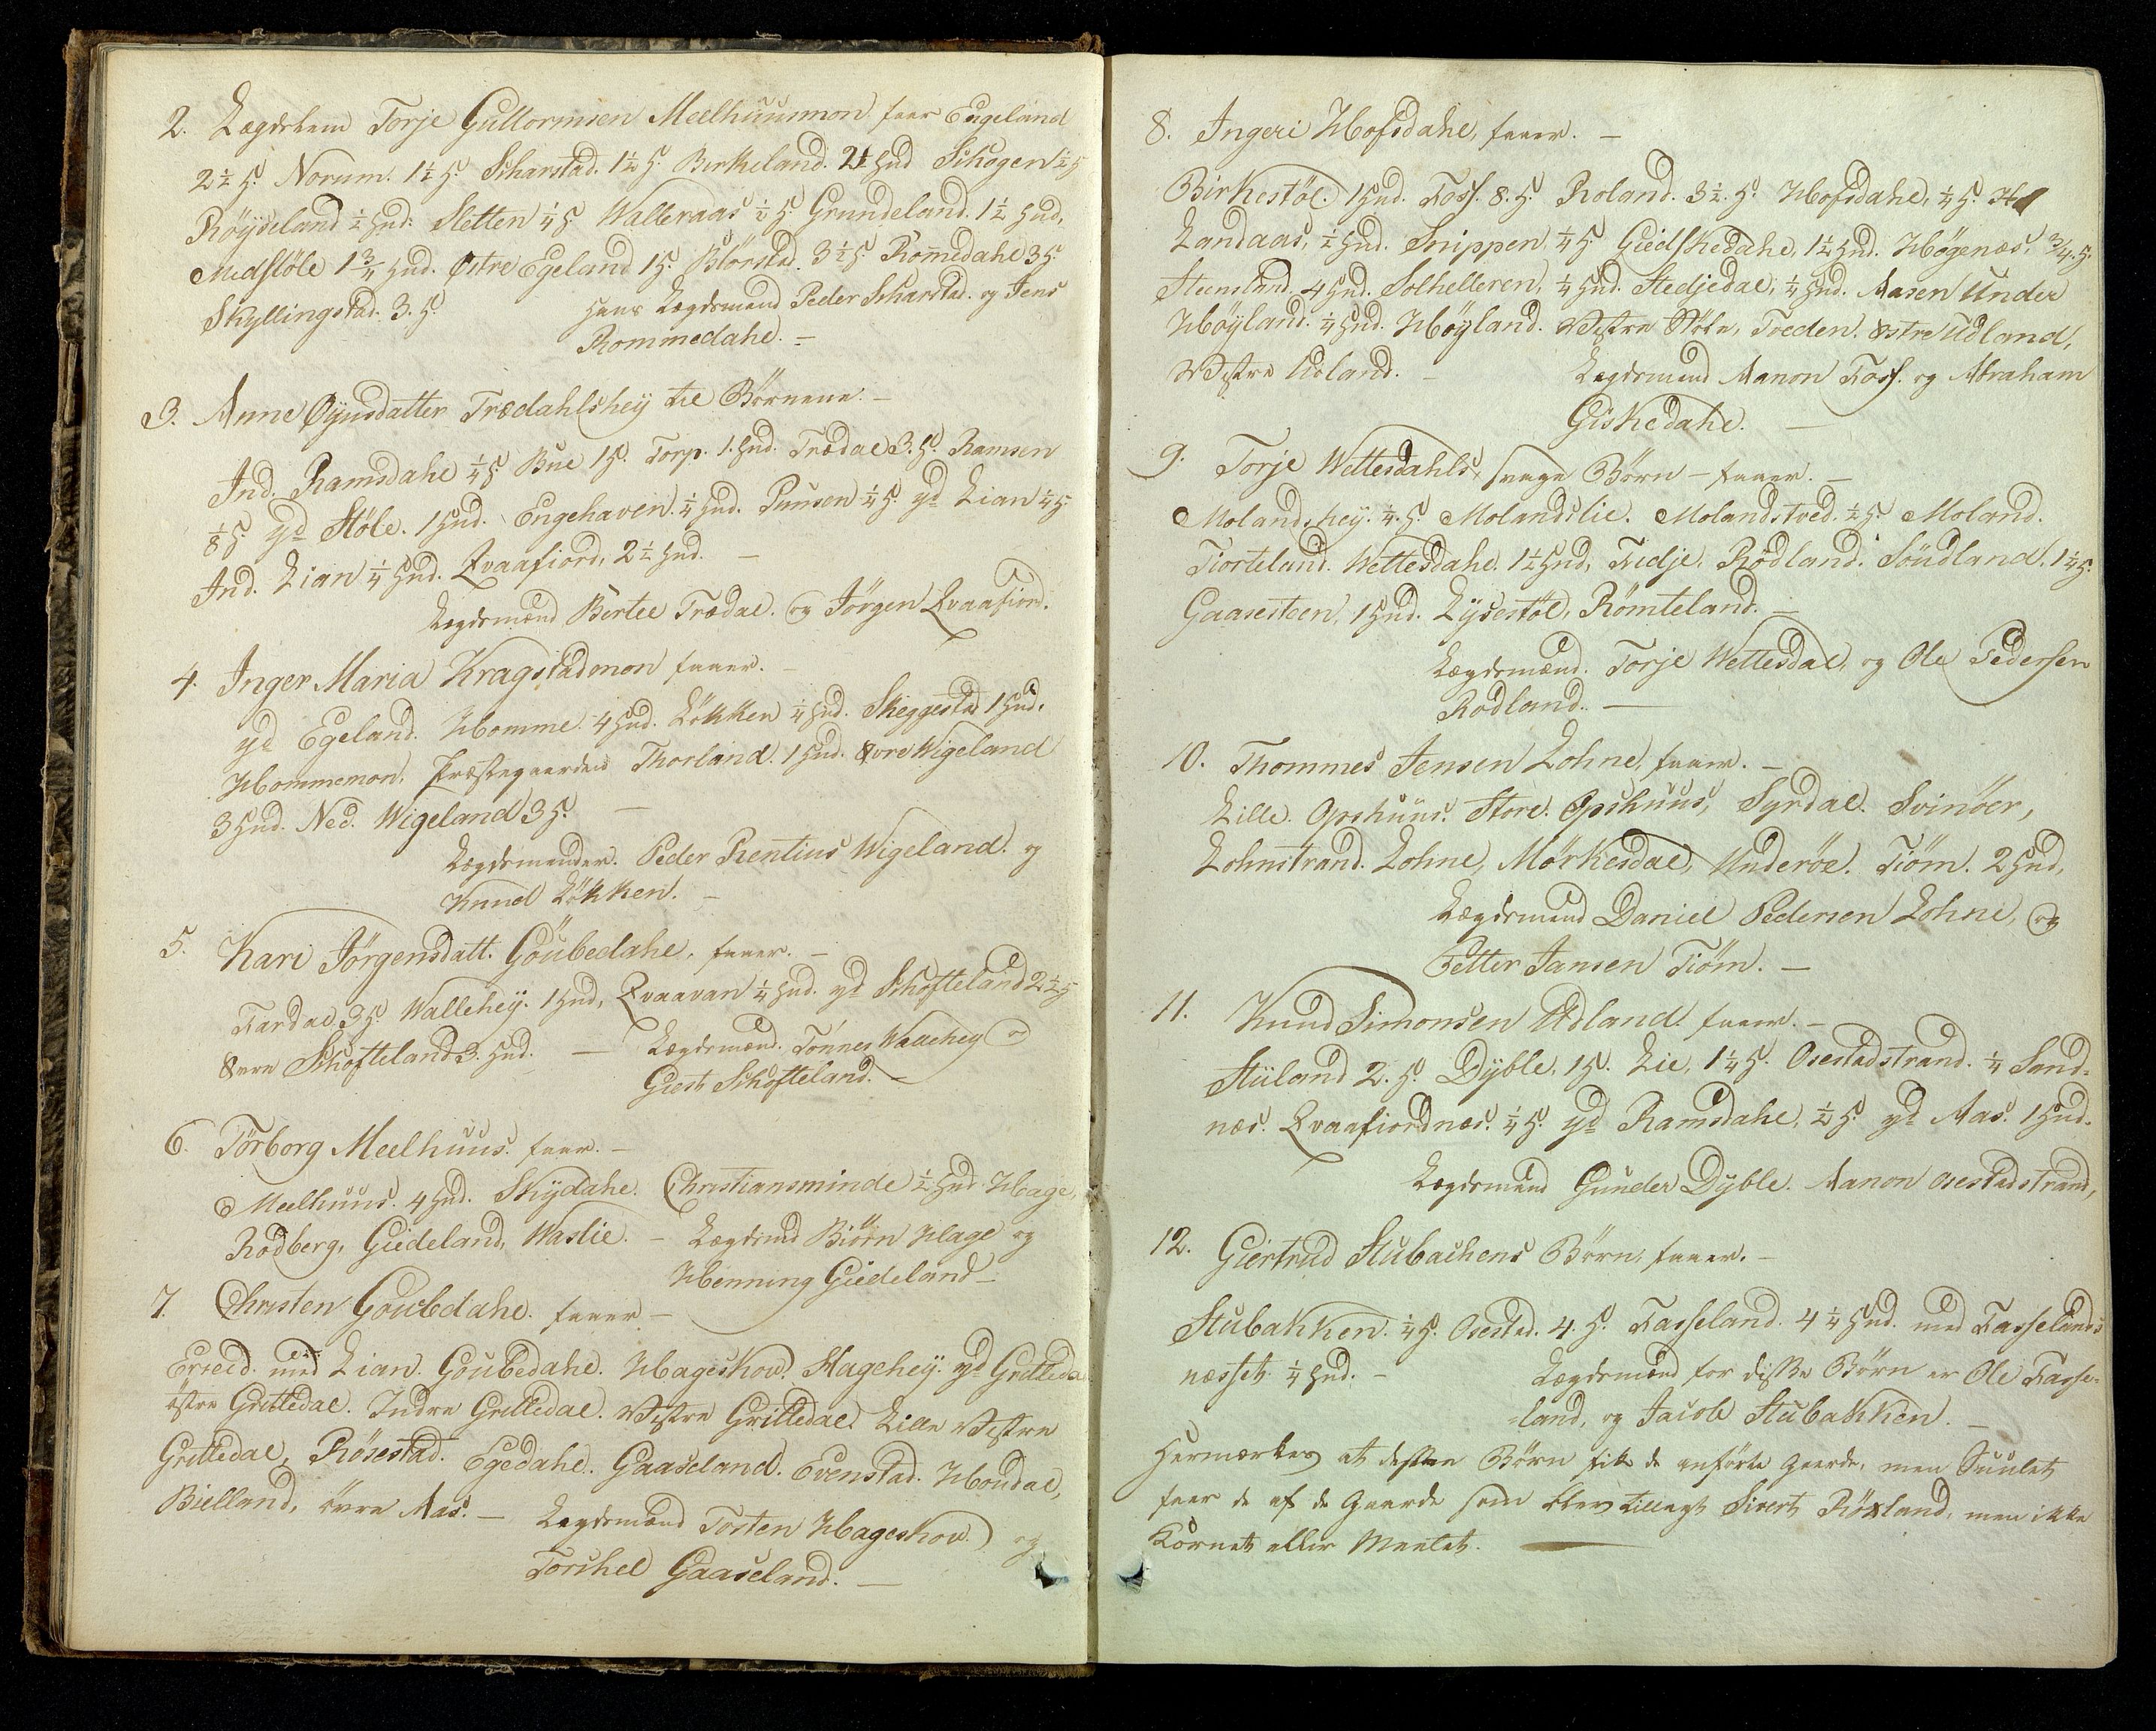 2. Lægdslem Torje Gullormsen Meelhuusmon faar Eugeland
2½ H. Norum. 1½ H. Scharstad. 1½ H. Birkeland. 2½ Hud Schogen ½ H
Röyseland ½ Hud: Sletten ¼ H Walleraas ½ H. Grundeland. 1½ Hud,
Midstöle 1¾ Hud. Østre Egeland 1 H. Blörstad. 3½ H. Romedahl 3 H.
Skyllingstad. 3. H. hans Lægdsmænd Peder Scharstad. og Jens
Rommedahl. –
3. Anne Öynsdatter Trædahlshey til Börnene. –
Ind. Ramsdahl ¼ H Bue 1 H. Torp. 1. Hud. Trædal 3. H. Ramsen
⅛ H. yd Stöle. 1 Hud. Engehaven. ¼ Hud. Punsen ¼ H. yd Lian ¼ H.
Ind. Lian ¼ Hud. Qvaafiord, 2½ Hud. –
Lægdsmænd Bertel Trædal. og Jörgen Qvaafiord.
4. Inger Maria Kragstadmon faaer. –
yd Egeland. Homme. 4 Hud. Lökken ¼ Hud. Skeggestad 1 Hud.
Hommemon. Præstegaarden Thorland. 1 Hud. Övre Wigeland
3 Hud. Ned. Wigeland 3 H. –
Lægdsmænder. Peder Rentius Wigeland. og
Knud Lökken. –
5. Kari Jörgensdatt. Goubedahl, faaer. –
Fardal 3 H. Wallehey. 1 Hud, Qvaavan ¼ Hud. yd Schofteland 2½ H
Övre Schofteland 3. Hud. – Lægdsmænd. Tönnes Waaehey og
Giest Schofteland. –
6. Törborg Meelhuus. faar. –
Meelhuus. 4 Hud. Skydahl. Christiansminde ½ Hud. Hage,
Rodberg, Giedeland, Waslie. – Lægdsmd Biörn Hage og
Henning Giedeland –
7. Christen Goubdahl. faaer –
Erieid. med Lian. Goubedahl. Hageskov. Hagehey. yd Grittleda
östre Grittledal. Indre Grittledal. Vestre Grittledal Lille Vestre
Grittledal, Rösestad. Egedahl. Gaaseland. Evenstad. Houdal,
Bielland, övre Aas. – Lægdsmænd Torsten Hageskov. og
Torchel Gaaseland. –
8. Ingeri Hofsdahl, faaer. –
Birkestöl. 1 Hud. Foss. 8. H. Roland. 3½. H. Hofsdahl, ¼ H.
Landaas, ½ Hud. Snippen ¼ H Giedskedahl, 1½ Hud. Högenæs, ¾. H.
Steensland. 4 Hud. Solhelleren, ¼ Hud. Stedjedal, ¼ Hud. Aasen Under
Höyland. ¼ Hud. Höyland. Vestre Stöle, Tveden. östre Udland,
Vestre Udland. – Lægdsmænd Aanon Foss. og Abraham
Giskedahl. –
9. Torje Wettesdahls, svage Börn – faaer. –
Molandshey. ¼. H. Molandslie. Molandstved. ½ H. Moland.
Tiorteland. Wettesdahl. 1½ Hud, Fidje, Rödland. Söudland. 1¼ H.
Gaasesteen, 1 Hud. Lysestöl, Römteland. –
Lægdsmænd. Torje Wettesdal, og Ole Pedersen
Rodland. –
10. Thommes Jensen Lohne, faaer. –
Lille. Opshuus. Store. Opshuus, Syrdal. Svinöer,
Lohnstrand. Lohne, Mörkesdal, Underöe. Tiöm. 2 Hud,
Lægdsmænd Daniel Pedersen Lohne, og
Petter Jansen Tiöm. –
11. Knud Simonsen Udland. faaer. –
Stüland 2. H. Dyble, 1 H. Lie, 1¼ H. Osestadstrand. ¼ Sand-
næs. Qvaafiordnæs. ¼ H. yd Ramsdahl, ½ H. yd Aas. 1 Hud.
Lægdsmænd Gunder Dyble. Aanon Osestadstrand,
12. Giertrud Stubachens Börn, faaer. –
Stubakken. ¼ H. Osestad. 4. H. Fasseland. 4¼ Hud. med Fasselands
næsset ¼ Hud. – Lægdsmænd for disse Börn er Ole Fasse-
-land, og Jacob Stubakken. –
Hermærkes at disse Börn fik de anförte Gaarde, men Suulet
faar de af de Gaarde som blev tillagt Sivert Röxland, men ikke
Kornet eller Meelet. –